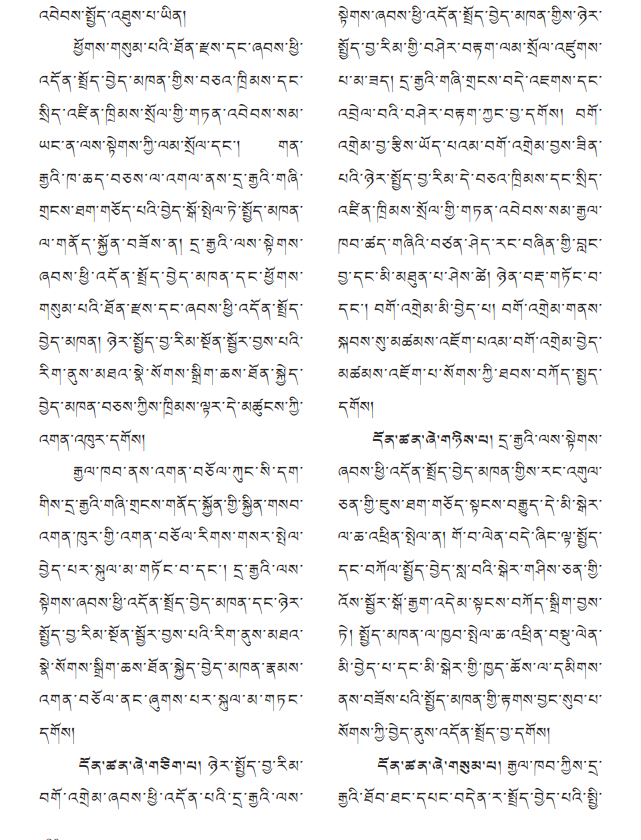 འབེབས་སྤྱོད་འཐུས་པ་ཡིན།
ཕྱོགས་གསུམ་པའི་ཐོན་རྫས་དང་ཞབས་ཕྱི་
འདོན་སྤྲོད་བྱེད་མཁན་གྱིས་བཅའ་ཁྲིམས་དང་
སྲིད་འཛིན་ཁྲིམས་སྲོལ་གྱི་གཏན་འབེབས་སམ་
ཡང་ན་ལས་སྟེགས་ཀྱི་ལམ་སྲོལ་དང་། གན་
རྒྱའི་ཁ་ཆད་བཅས་ལ་འགལ་ནས་དྲ་རྒྱའི་གཞི་
གྲངས་ཐག་གཅོད་པའི་བྱེད་སྒོ་སྤེལ་ཏེ་སྤྱོད་མཁན་
ལ་གནོད་སྐྱོན་བཟོས་ན། དྲ་རྒྱའི་ལས་སྟེགས་
ཞབས་ཕྱི་འདོན་སྤྲོད་བྱེད་མཁན་དང་ཕྱོགས་
གསུམ་པའི་ཐོན་རྫས་དང་ཞབས་ཕྱི་འདོན་སྤྲོད་
བྱེད་མཁན། ཉེར་སྤྱོད་བྱ་རིམ་སྔོན་སྒྱོར་བྱས་པའི་
རིག་ནུས་མཐའ་སྣེ་སོགས་སྒྲིག་ཆས་ཐོན་སྐྱེད་
བྱེད་མཁན་བཅས་ཀྱིས་ཁྲིམས་ལྟར་དེ་མཚུངས་ཀྱི་
འགན་འཁུར་དགོས།
རྒྱལ་ཁབ་ནས་འགན་བཅོལ་ཀུང་སི་དག་
གིས་དྲ་རྒྱའི་གཞི་གྲངས་གནོད་སྐྱོན་གྱི་སྐྱིན་གསབ་
འགན་ཁུར་གྱི་འགན་བཅོལ་རིགས་གསར་སྤེལ་
བྱེད་པར་སྐུལ་མ་གཏོང་བ་དང་། དྲ་རྒྱའི་ལས་
སྟེགས་ཞབས་ཕྱི་འདོན་སྤྲོད་བྱེད་མཁན་དང་ཉེར་
སྤྱོད་བྱ་རིམ་སྔོན་སྒྱོར་བྱས་པའི་རིག་ནུས་མཐའ་
སྣེ་སོགས་སྒྲིག་ཆས་ཐོན་སྐྱེད་བྱེད་མཁན་རྣམས་
འགན་བཅོལ་ནང་ཞུགས་པར་སྐུལ་མ་གཏང་
དགོས།
དོན་ཚན་ཞེ་གཅིག་པ། ཉེར་སྤྱོད་བྱ་རིམ་
བགོ་འགྲེམ་ཞབས་ཕྱི་འདོན་པའི་དྲ་རྒྱའི་ལས་
སྟེགས་ཞབས་ཕྱི་འདོན་སྤྲོད་བྱེད་མཁན་གྱིས་ཉེར་
སྤྱོད་བྱ་རིམ་གྱི་བཤེར་བརྟག་ལམ་སྲོལ་འཛུགས་
པ་མ་ཟད། དྲ་རྒྱའི་གཞི་གྲངས་བདེ་འཇགས་དང་
འབྲེལ་བའི་བཤེར་བརྟག་ཀྱང་བྱ་དགོས། བགོ་
འགྲེམ་བྱ་རྩིས་ཡོད་པའམ་བགོ་འགྲེམ་བྱས་ཟིན་
པའི་ཉེར་སྤྱོད་བྱ་རིམ་དེ་བཅའ་ཁྲིམས་དང་སྲིད་
འཛིན་ཁྲིམས་སྲོལ་གྱི་གཏན་འབེབས་སམ་རྒྱལ་
ཁབ་ཚད་གཞིའི་བཙན་ཤེད་རང་བཞིན་གྱི་བླང་
བྱ་དང་མི་མཐུན་པ་ཤེས་ཚེ། ཉེན་བརྡ་གཏོང་བ་
དང་། བགོ་འགྲེམ་མི་བྱེད་པ། བགོ་འགྲེམ་གནས་
སྐབས་སུ་མཚམས་འཇོག་པའམ་བགོ་འགྲེམ་བྱེད་
མཚམས་འཇོག་པ་སོགས་ཀྱི་ཐབས་བཀོད་སྤྱད་
དགོས།
དོན་ཚན་ཞེ་གཉིས་པ། དྲ་རྒྱའི་ལས་སྟེགས་
ཞབས་ཕྱི་འདོན་སྤྲོད་བྱེད་མཁན་གྱིས་རང་འགུལ་
ཅན་གྱི་ཇུས་ཐག་གཅོད་སྟངས་བརྒྱུད་དེ་མི་སྒེར་
ལ་ཆ་འཕྲིན་སྤེལ་ན། གོ་བ་ལེན་བདེ་ཞིང་ལྟ་སྤྱོད་
དང་བཀོལ་སྤྱོད་བྱེད་སླ་བའི་སྒེར་གཤིས་ཅན་གྱི་
འོས་སྦྱོར་སྒོ་རྒྱག་འདེམ་སྟངས་བཀོད་སྒྲིག་བྱས་
ཏེ། སྤྱོད་མཁན་ལ་ཁྱབ་སྤེལ་ཆ་འཕྲིན་བསྡུ་ལེན་
མི་བྱེད་པ་དང་མི་སྒེར་གྱི་ཁྱད་ཆོས་ལ་དམིགས་
ནས་བཟོས་པའི་སྤྱོད་མཁན་གྱི་རྟགས་བྱང་སུབ་པ་
སོགས་ཀྱི་བྱེད་ནུས་འདོན་སྤྲོད་བྱ་དགོས།
དོན་ཚན་ཞེ་གསུམ་པ། རྒྱལ་ཁབ་ཀྱིས་དྲ་
རྒྱའི་ཐོབ་ཐང་དཔང་བདེན་ར་སྤྲོད་བྱེད་པའི་སྤྱི་